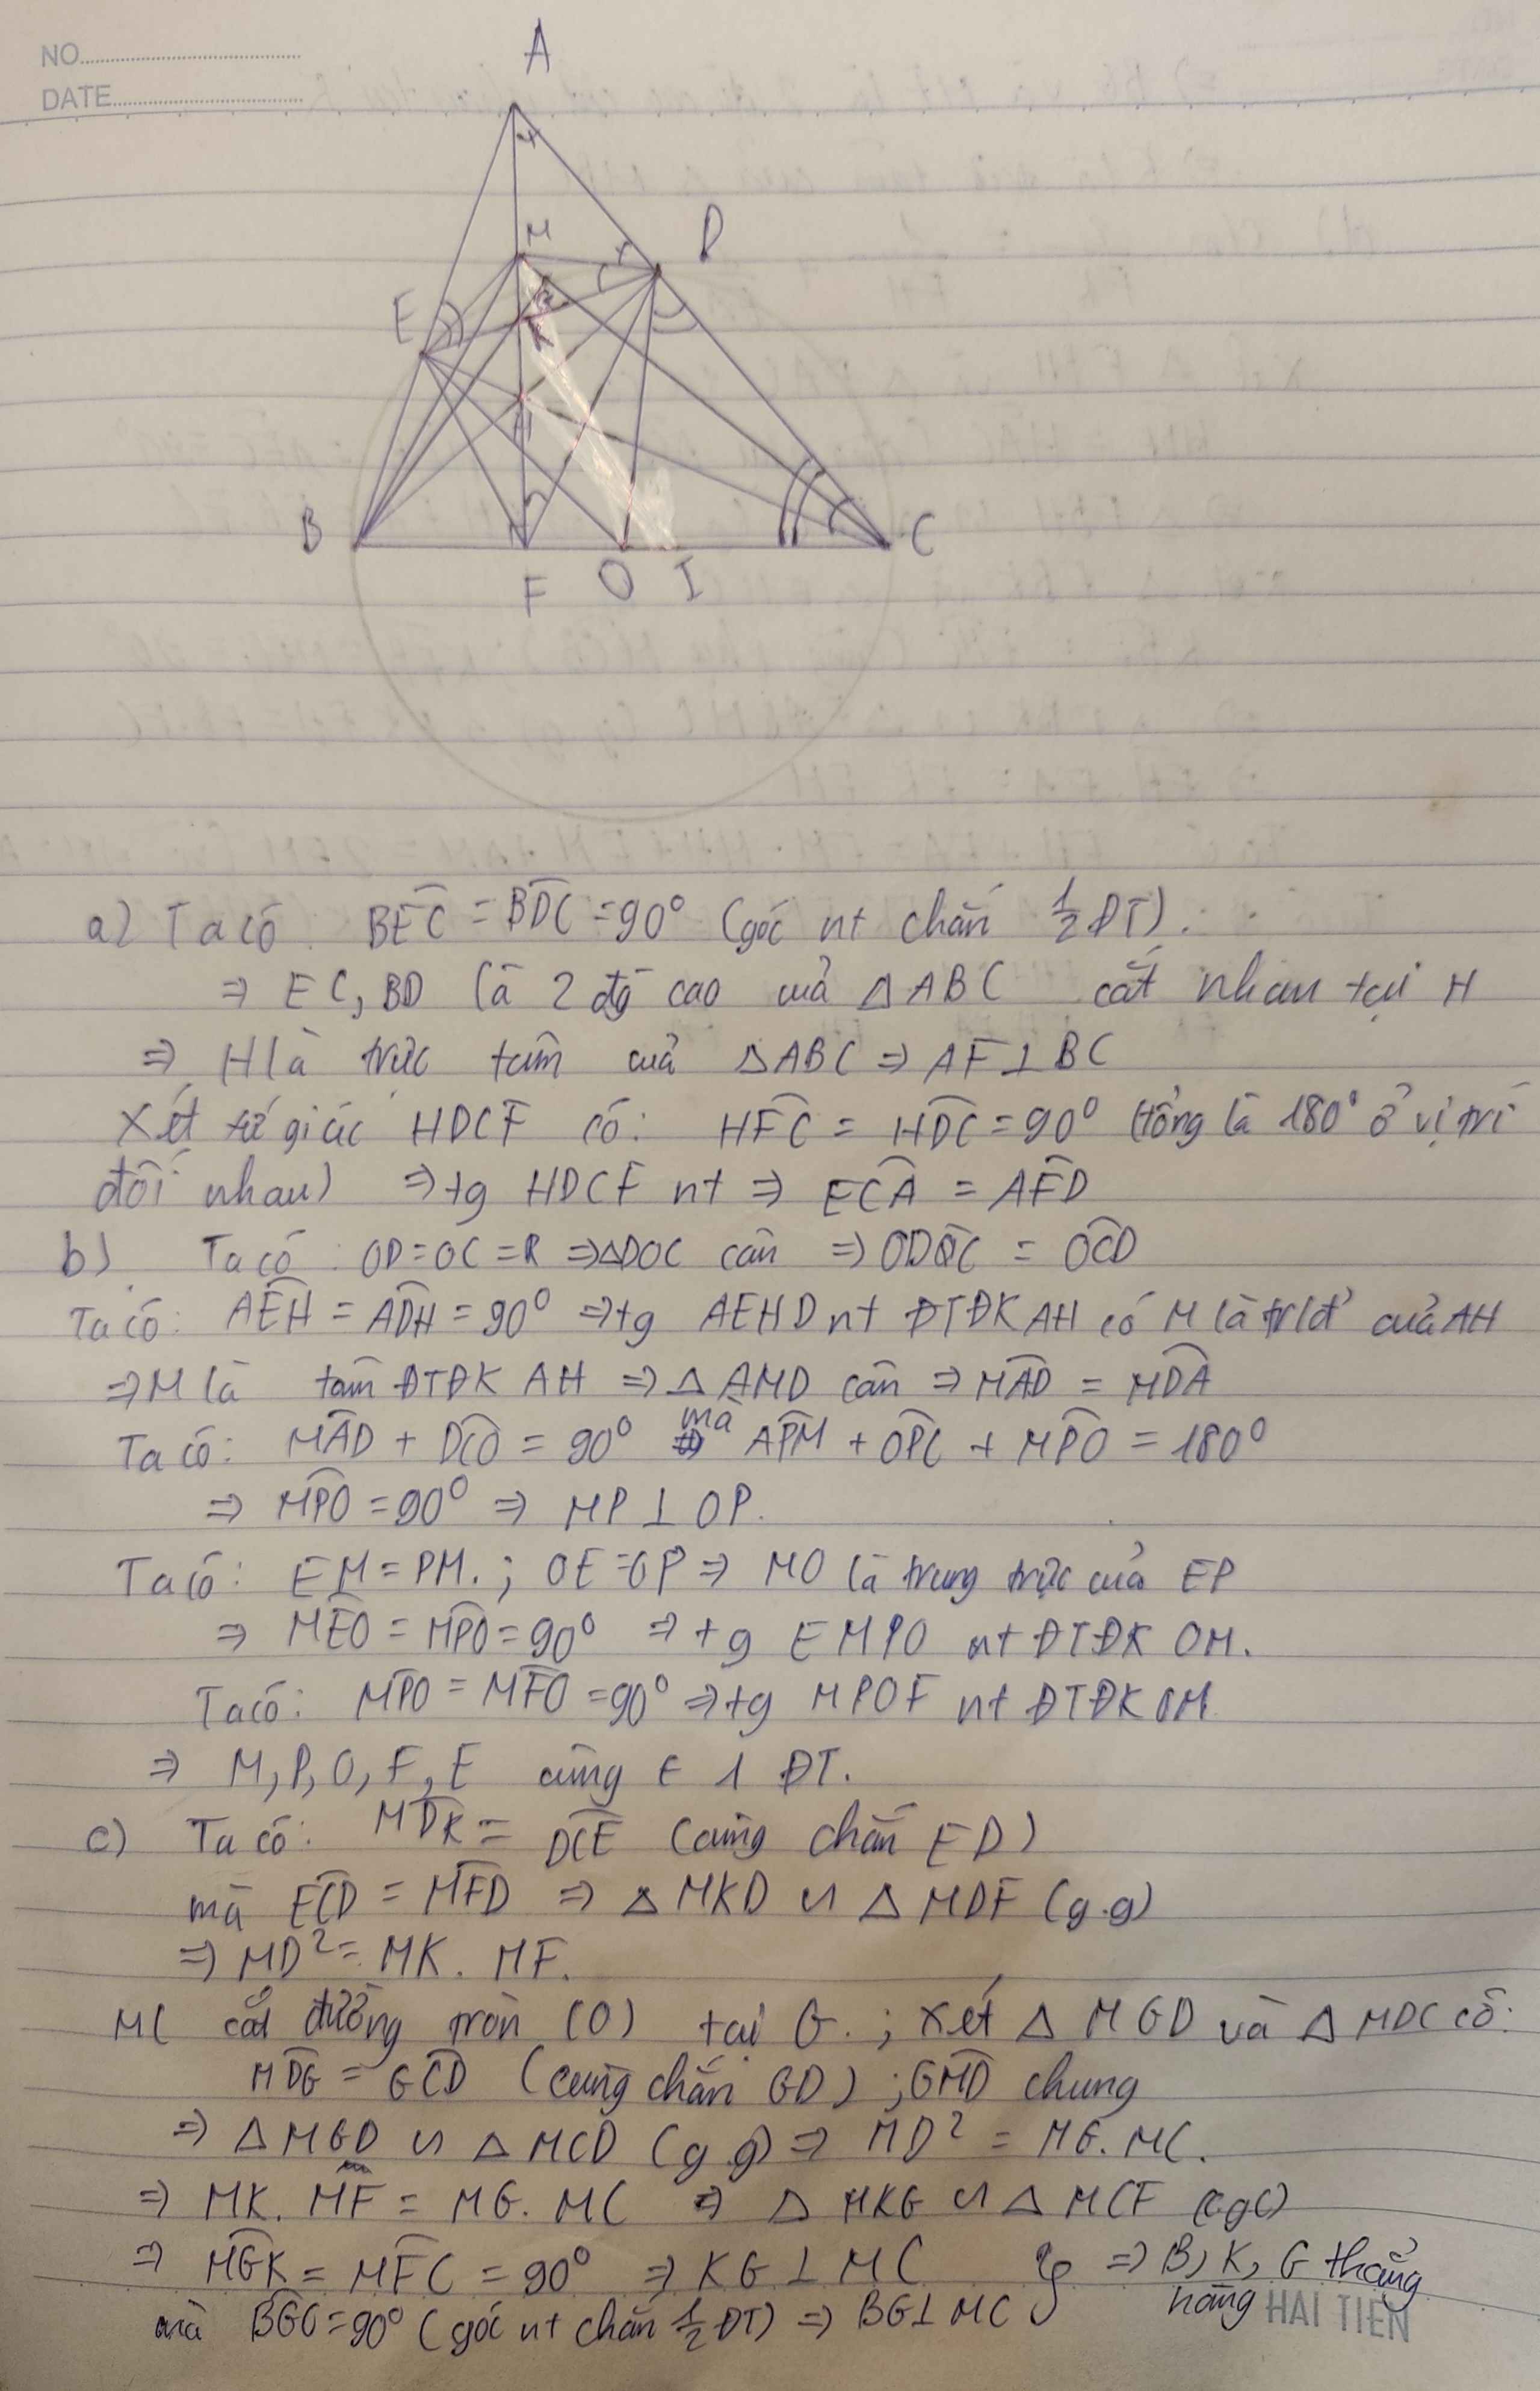 NO.
DATE
A
M
D
E
K
H
B
F
O
I
C
a) Ta có: BEC = BDC = 90° (góc nt chắn 1/2 ĐT).
⇒ EC, BD là 2 đg cao của △ABC cắt nhau tại H
⇒ H là trực tâm của △ABC ⇒ AF⊥BC
Xét tứ giác HDCF có: HFC = HDC = 90° (tổng là 180° ở vị trí
đối nhau) ⇒ tg HDCF nt ⇒ ECA = AFD
b) Ta có: OD=OC=R ⇒ △DOC cân ⇒ ODC = OCD
Ta có: AEH = ADH = 90° ⇒ tg AEHD nt ĐTĐK AH có M là trđ của AH
⇒ M là tâm ĐTĐK AH ⇒ △AMD cân ⇒ MAD = MDA
Ta có: MAD + DCO = 90° mà ADM + ODC + MDO = 180°
⇒ MDO = 90° ⇒ MD⊥OD.
Ta có: EM = DM.; OE=OD ⇒ MO là trung trực của ED
⇒ MEO = MDO = 90° ⇒ tg EMDO nt ĐTĐK OM.
Ta có: MDO = MFO = 90° ⇒ tg MDOF nt ĐTĐK OM
⇒ M, D, O, F, E cùng ∈ 1 ĐT.
c) Ta có: MDK = DCE (cùng chắn ED)
mà ECD = MFD ⇒ △MKD ∽ △MDF (g.g)
⇒ MD² = MK. MF.
MC cắt đường tròn (O) tại G.; Xét △MGD và △MDC có:
MDG = GCD (cùng chắn GD); GMD chung
⇒ △MGD ∽ △MCD (g.g) ⇒ MD² = MG. MC.
⇒ MK. MF = MG. MC ⇒ △MKG ∽ △MCF (cgc)
⇒ MGK = MFC = 90° ⇒ KG⊥MC } ⇒ B, K, G thẳng
mà BGC = 90° (góc nt chắn 1/2 ĐT) ⇒ BG⊥MC hàng
HẢI TIẾN